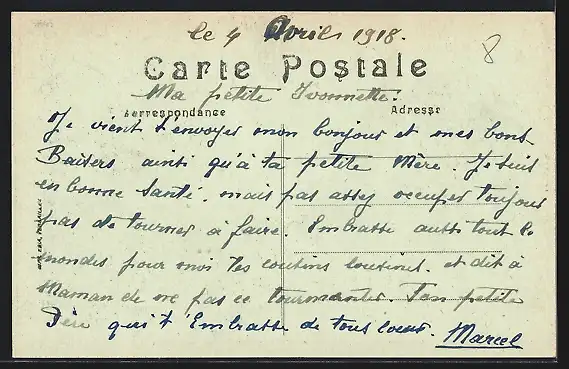 le 4 Avril 1918.
8
Carte Postale
Ma petite Ivonnette.
Correspondance
Adresse
Je vient t'envoyer mon bonjour et mes bons
Baisers ainsi qu'à ta petite Mère. Je suis
en bonne Santé. mais pas assez occuper toujour
pas de tourner à faire. Embrasse aussi tout le
mondes pour moi les coutins cousines. et dit à
Maman de ne pas ce tourmanter. Ton petite
Père qui t'Embrasse de tout coeur. Marcel